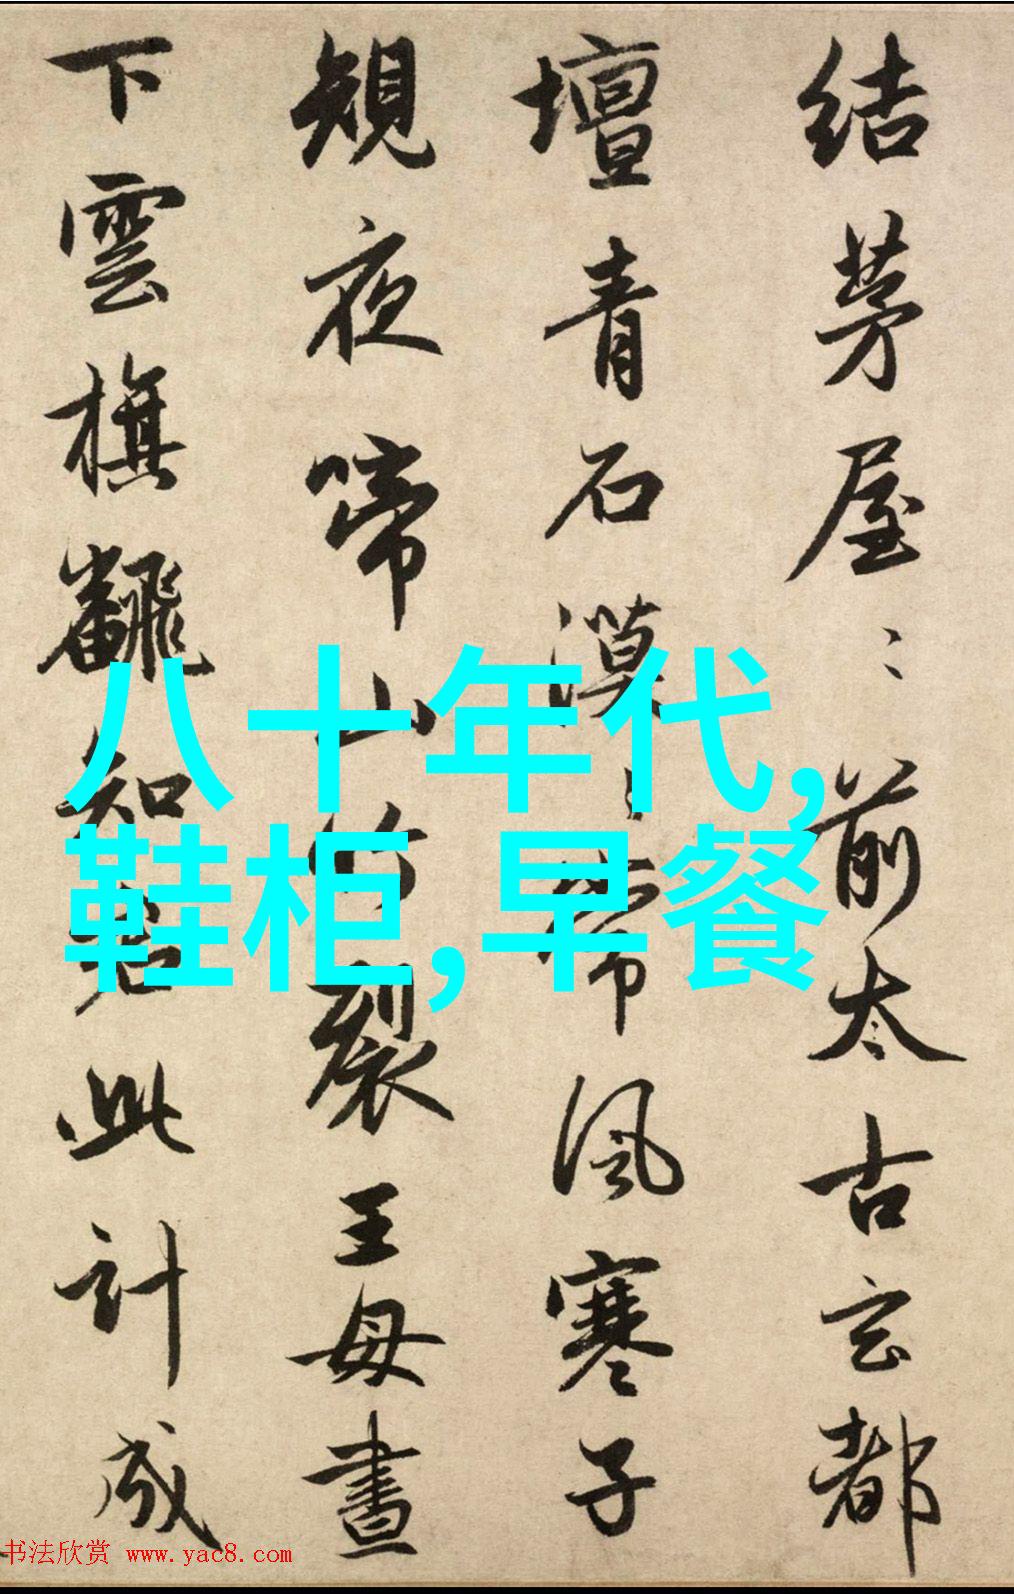 結茅屋〻前太古玄都
壇青石漠〻常風寒子
規夜啼山竹裂王母晝
下雲旗飜知君此計成
八十年代,
鞋柜,早餐
书法欣赏 www.yac8.com